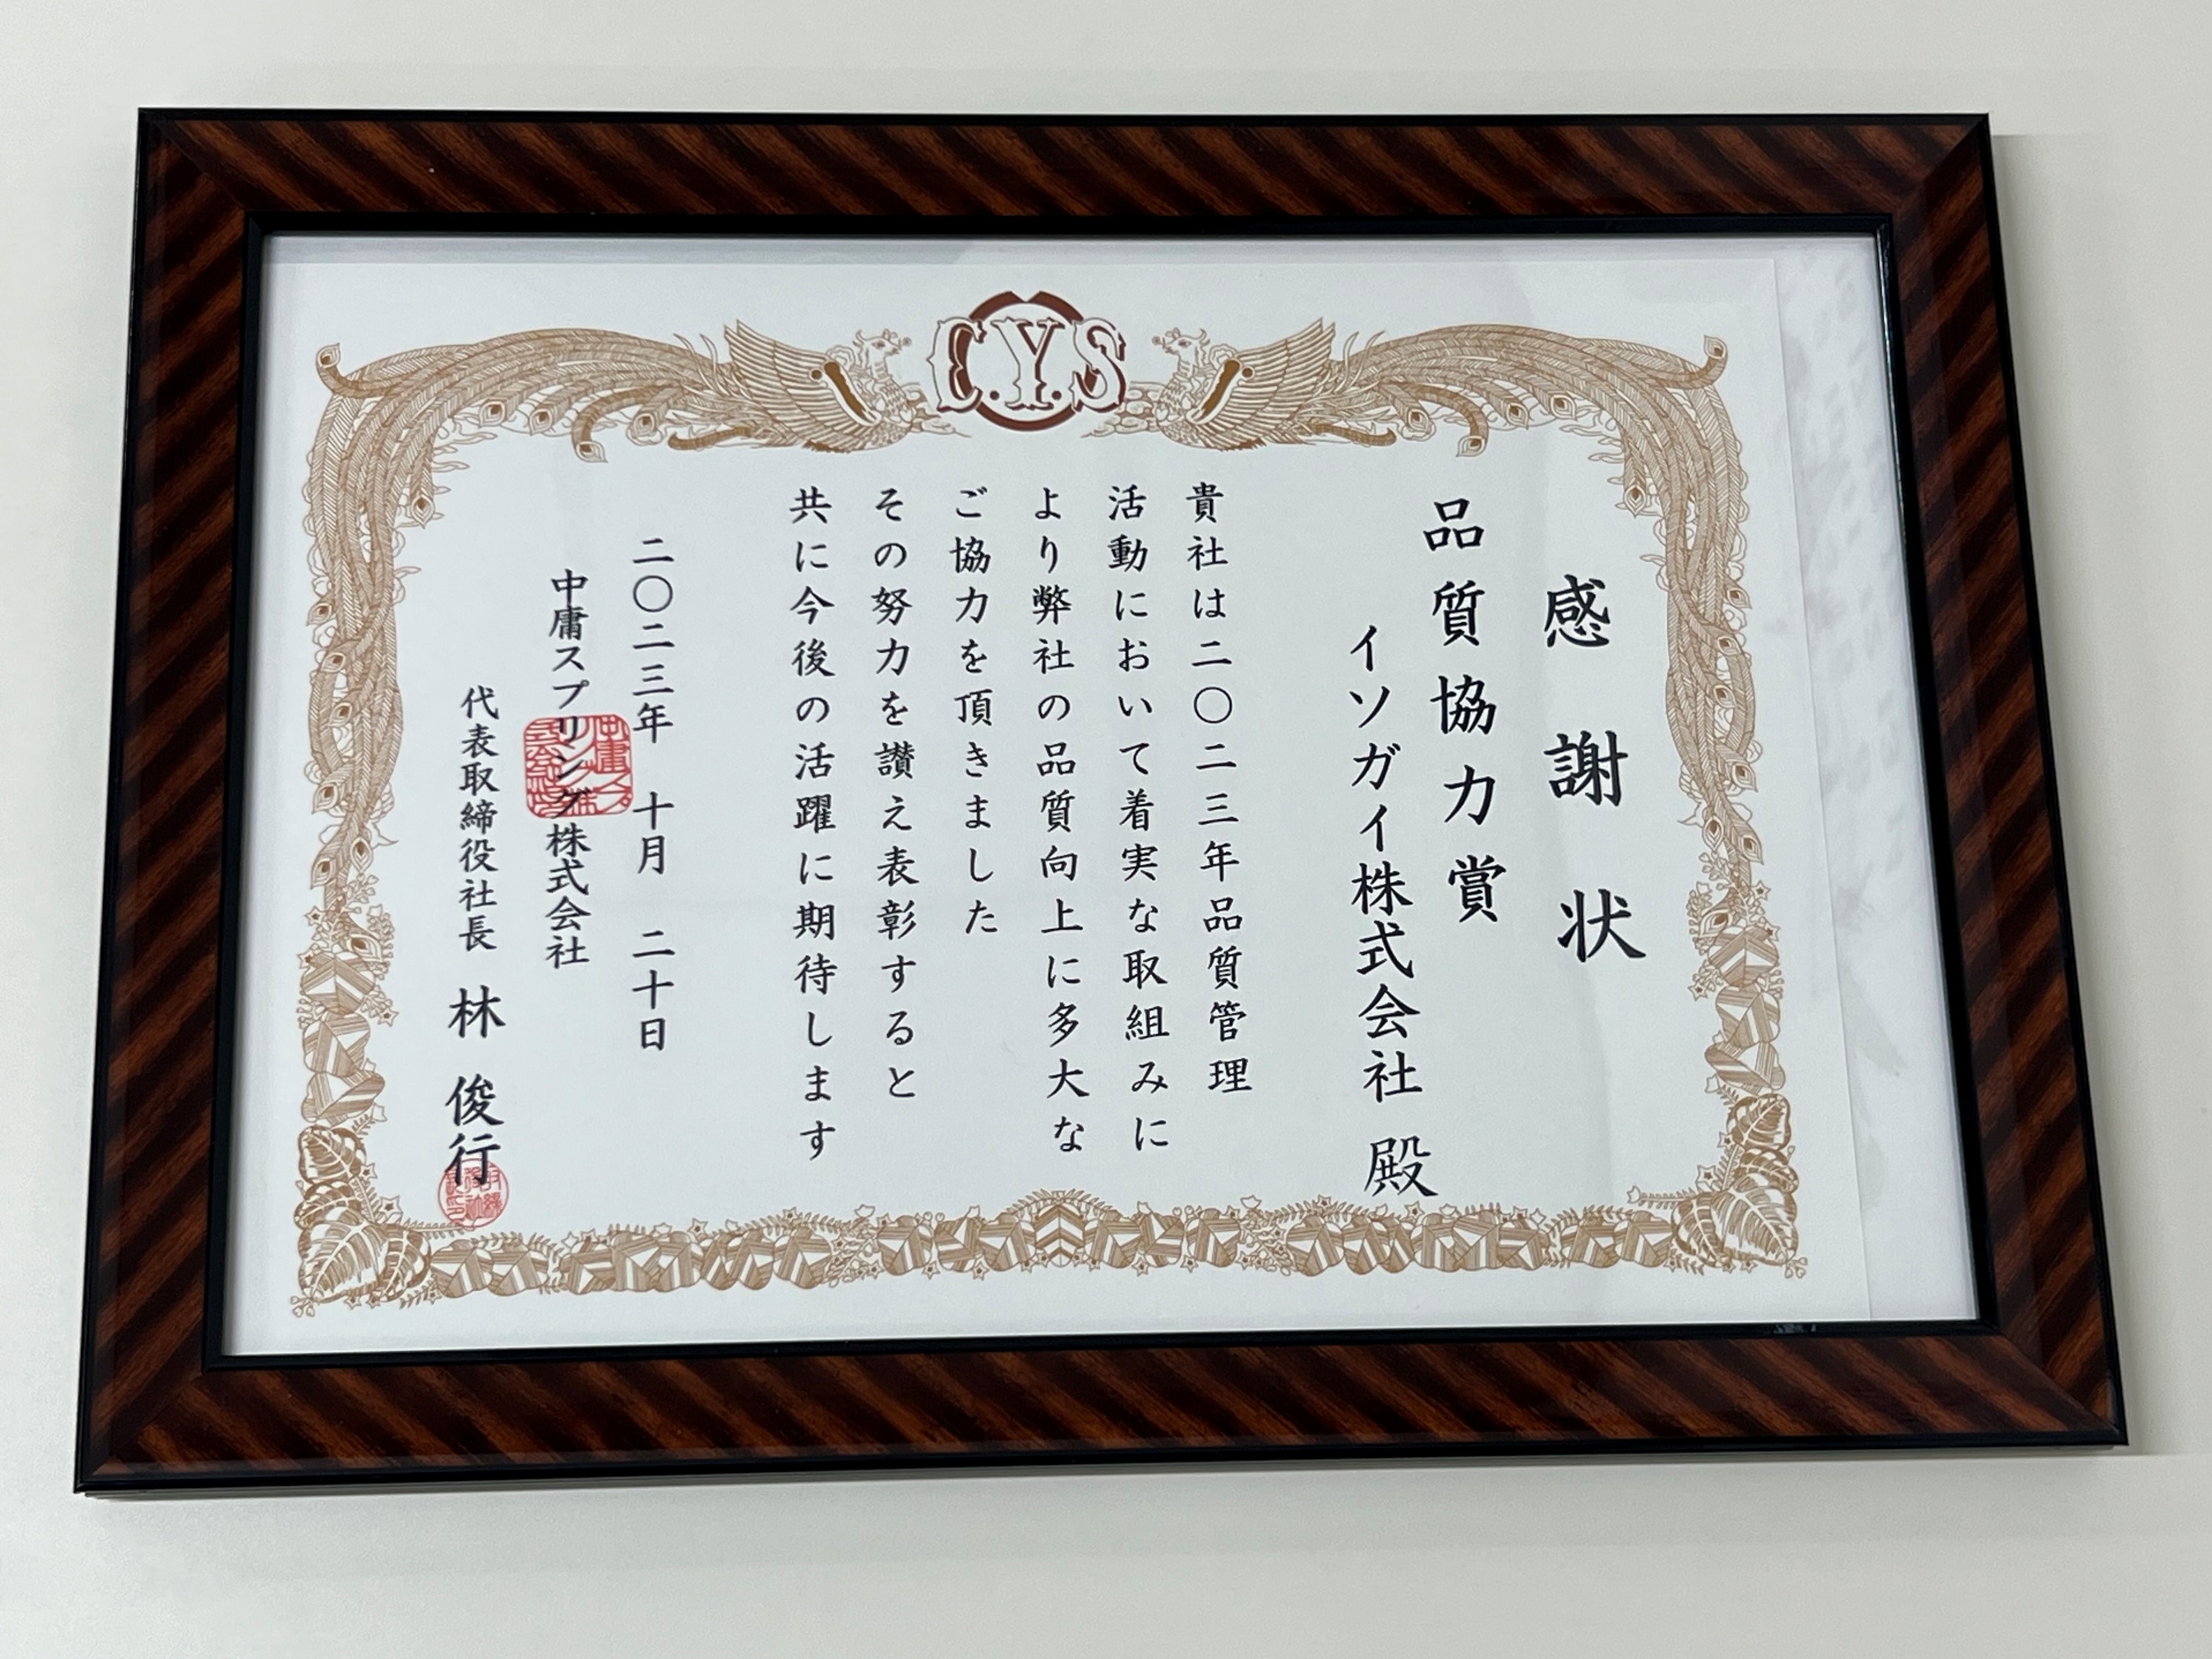 C.Y.S
感謝状
品質協力賞
イソガイ株式会社 殿
貴社は二〇二三年品質管理
活動において着実な取組みに
より弊社の品質向上に多大な
ご協力を頂きました
その努力を讃え表彰すると
共に今後の活躍に期待します
二〇二三年 十月 二十日
中庸スプリング株式会社
代表取締役社長 林 俊行